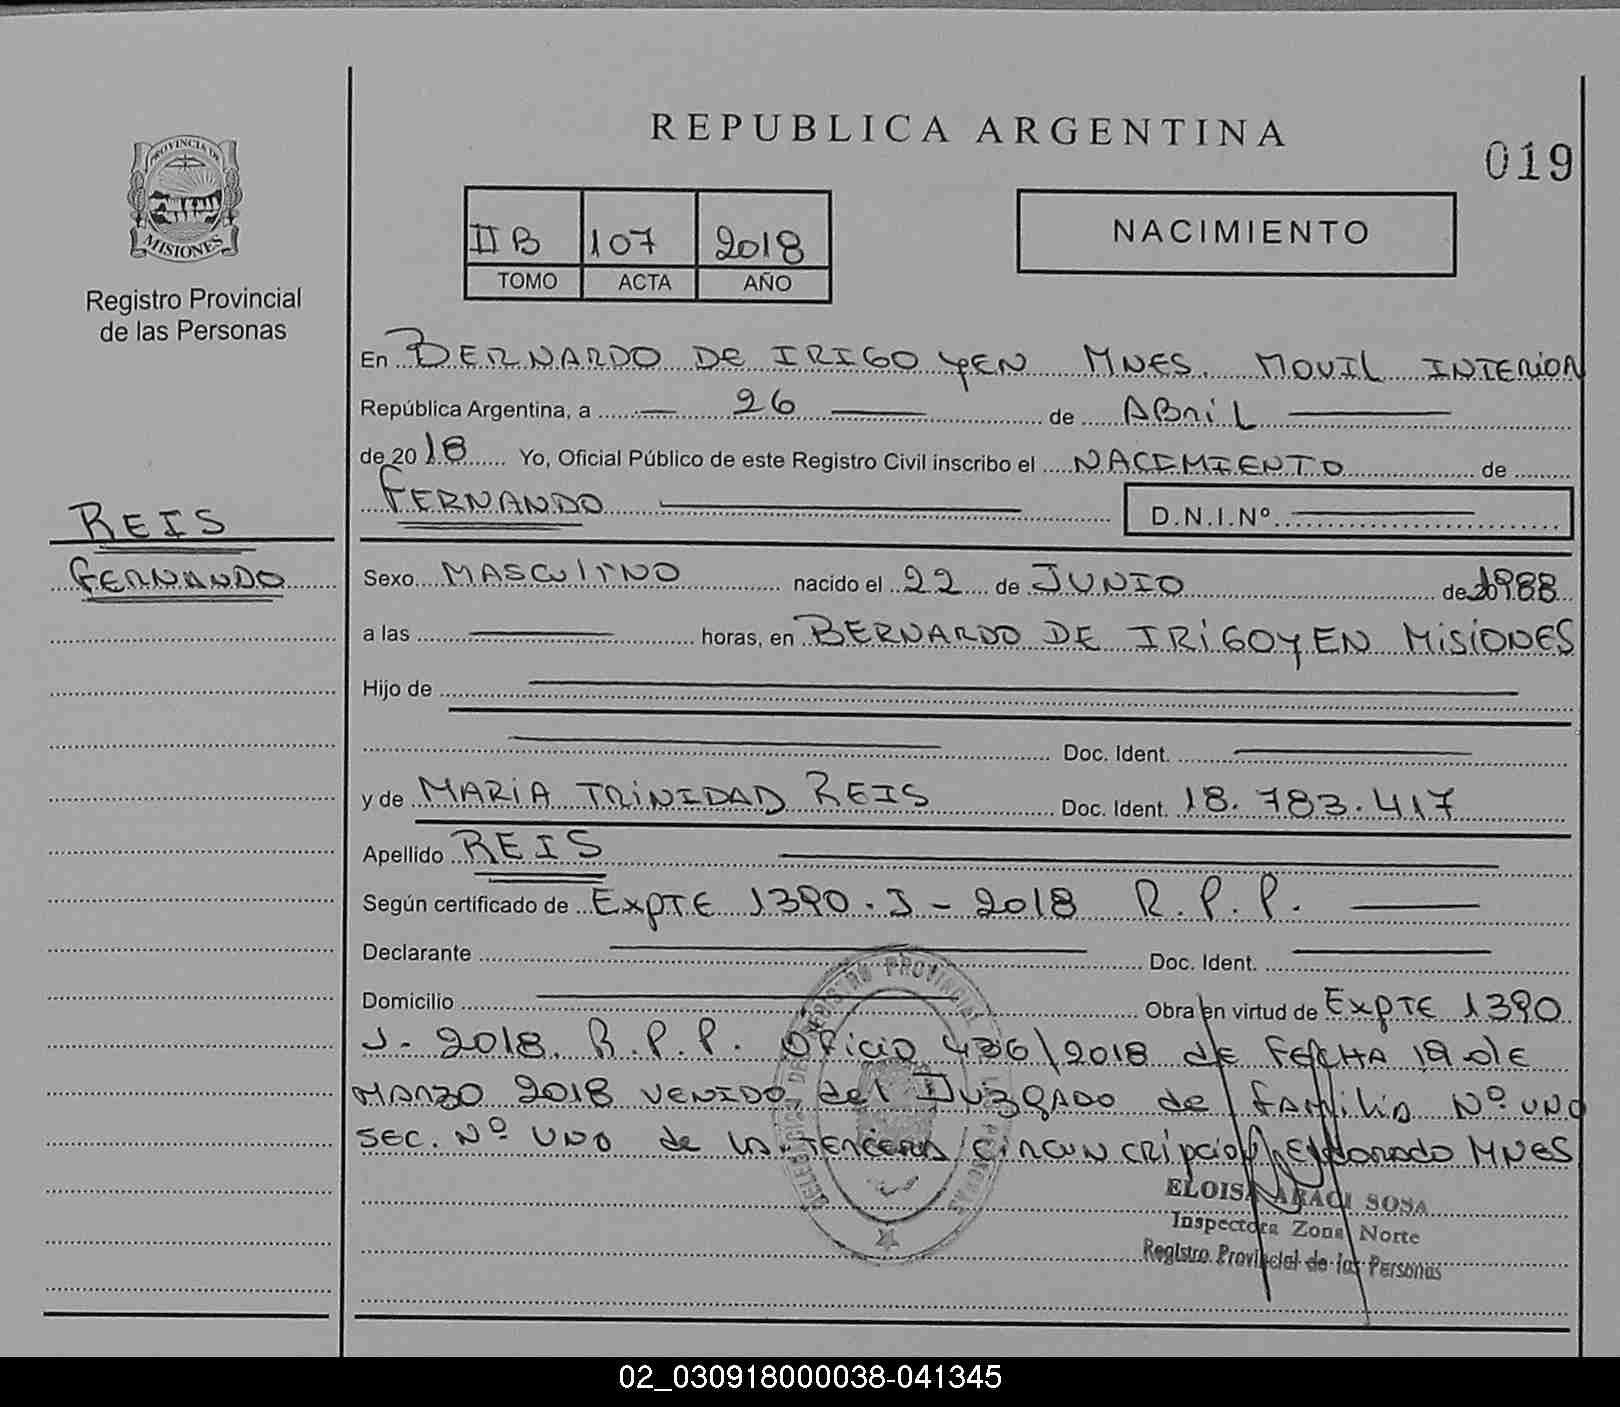 REPUBLICA ARGENTINA
019
PROVINCIA DE
MISIONES
Registro Provincial
de las Personas
II B 107 2018
TOMO ACTA AÑO
NACIMIENTO
En BERNARDO DE IRIGOYEN MNES. MOVIL INTERIOR
República Argentina, a — 26 — de ABRIL —
de 2018 Yo, Oficial Público de este Registro Civil inscribo el NACIMIENTO de
FERNANDO — D.N.I.Nº —
REIS
FERNANDO
Sexo MASCULINO nacido el 22 de JUNIO de 1988
a las — horas, en BERNARDO DE IRIGOYEN MISIONES
Hijo de —
— Doc. Ident. —
y de MARIA TRINIDAD REIS Doc. Ident. 18.783.417
Apellido REIS —
Según certificado de EXPTE 1390.J-2018 R.P.P. —
Declarante — Doc. Ident. —
Domicilio — Obra en virtud de EXPTE 1390
J-2018. R.P.P. Oficio /2018 de FECHA 19 de
MARZO 2018 VENIDO del JUZGADO de FAMiliA Nº UNO
SEC. Nº UNO de LA TERCERA CIRCUNCRIPCIO ELdorado MNES
REGISTRO PROVINCIAL
ELOISA ARACI SOSA
Inspectora Zona Norte
Registro Provincial de las Personas
02_030918000038-041345